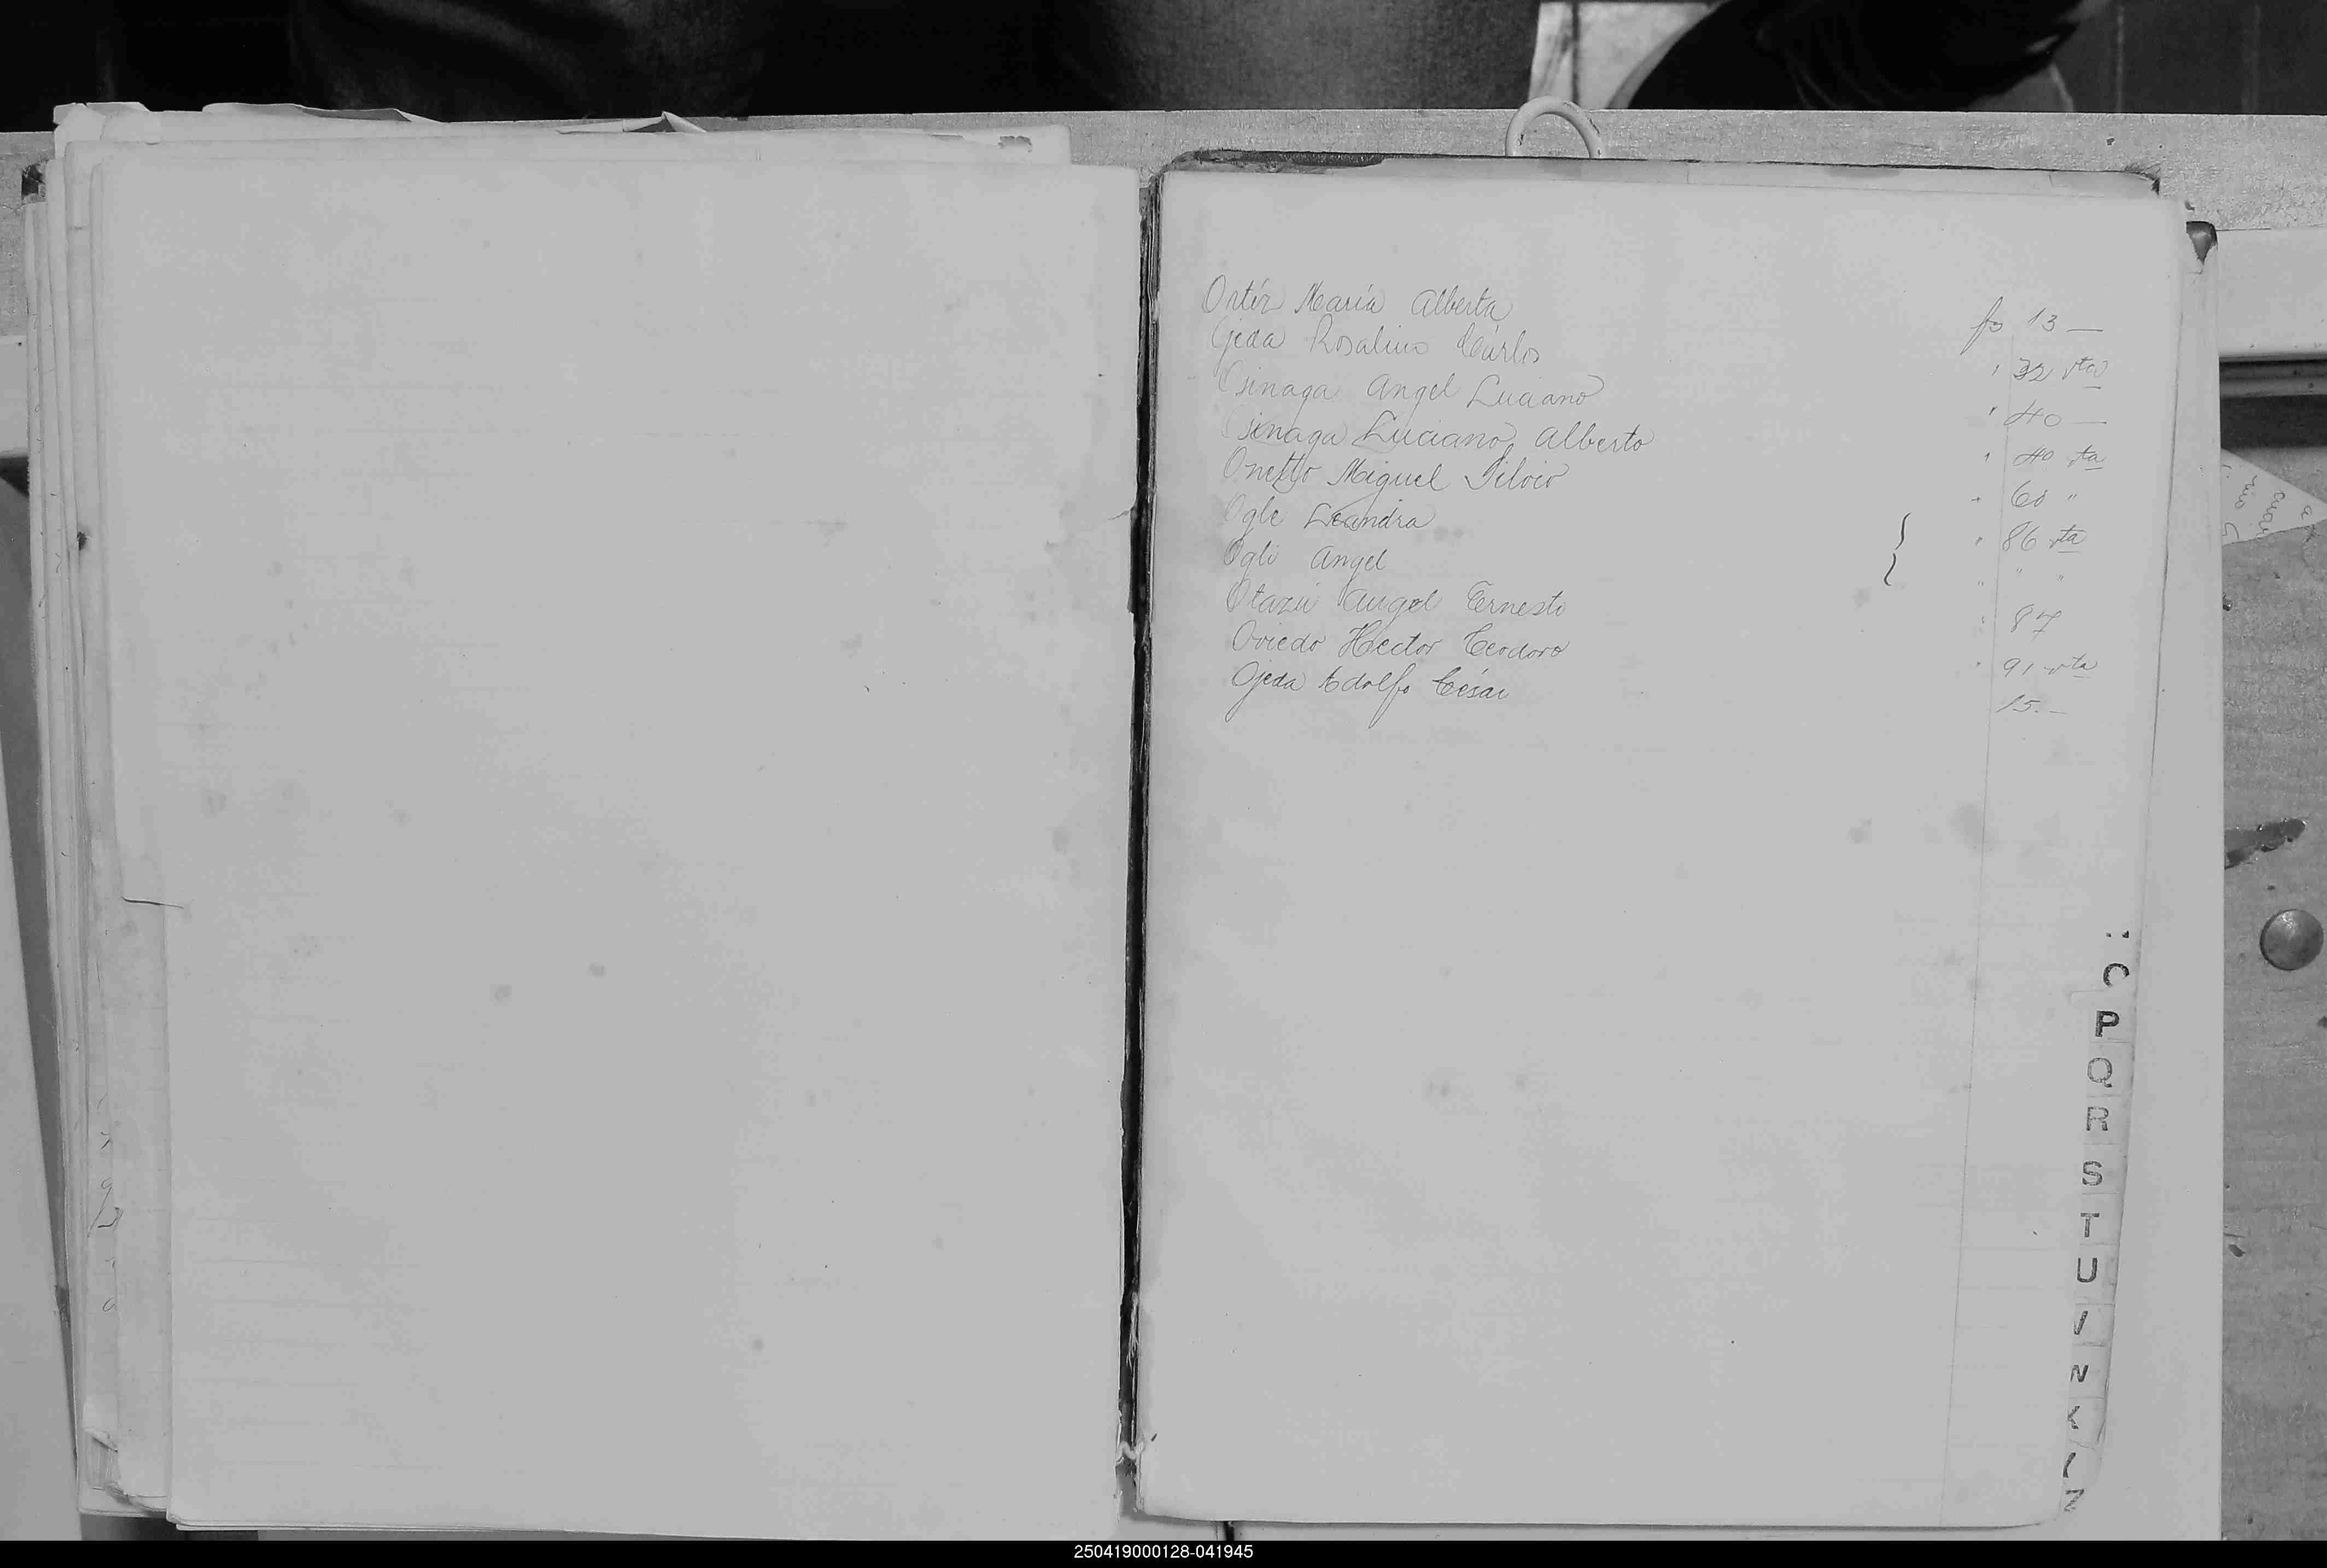 Ortíz María Alberta fo 13 —
Ojeda Rosalino Cárlos " 32 vta
Osinaga Angel Luciano " 40 —
Osinaga Luciano Alberto " 40 vta
Onetto Miguel Silvio " 60 "
Ogle Leandra " 86 vta
Ogli Angel " " "
Otazú Angel Ernesto " 87
Oviedo Hector Teodoro " 91 vta
Ojeda Adolfo César 15.—
O
P
Q
R
S
T
U
V
W
X
Y
Z
250419000128-041945